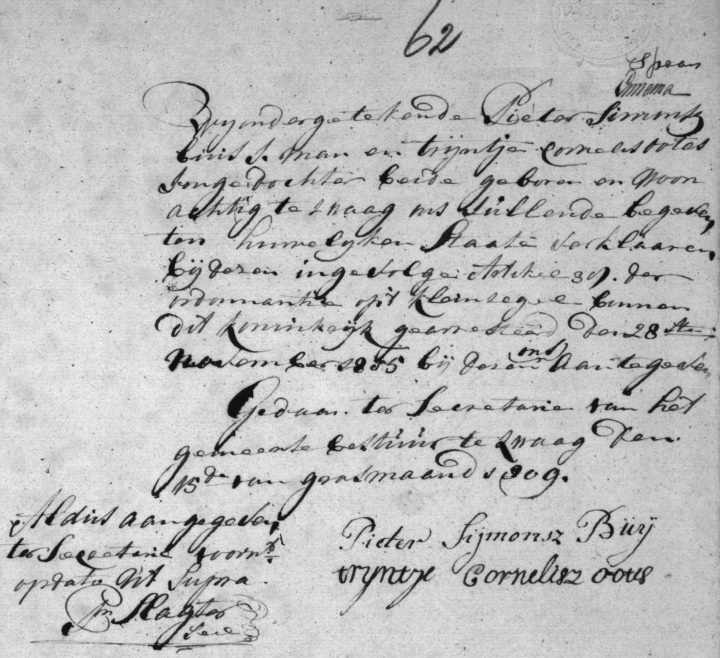 62
Wij ondergetekende Pieter Simonsz
Buis J. man en trijntje Cornelis ootes
Jonge dochter beide geboren en Woon
achtig te Zwaag ons zullende begeven
ten huwelijken Staate verklaaren
bij dezen ingevolge Artikel 39. der
ordonnantie op't klein zegel binnen
dit koninkrijk gearresteerd den 28 sten
November 1805 bij dezen ons Aantegeven
Gedaan ter Secretarie van het
gemeente bestuur te Zwaag den
15de van grasmaand 1809.
Aldus aangegeven
ter Secretarie voornt
op dato Ut Supra
Pr Slagter
Secr
Pieter Sijmonsz Buij
tryntje Cornelisz ootes